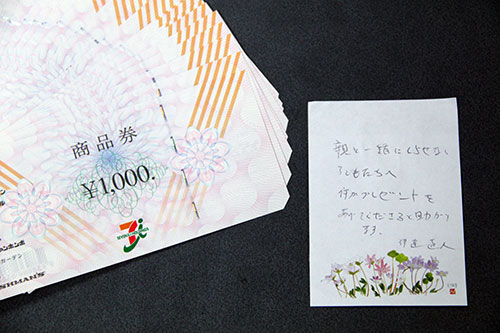 商品券
¥1,000.
ァンホンポ
ガーデン
SHMAN'S
親と一緒にくらせない
子どもたちへ
何かプレゼントを
あげてくださると助かり
ます。 伊達直人